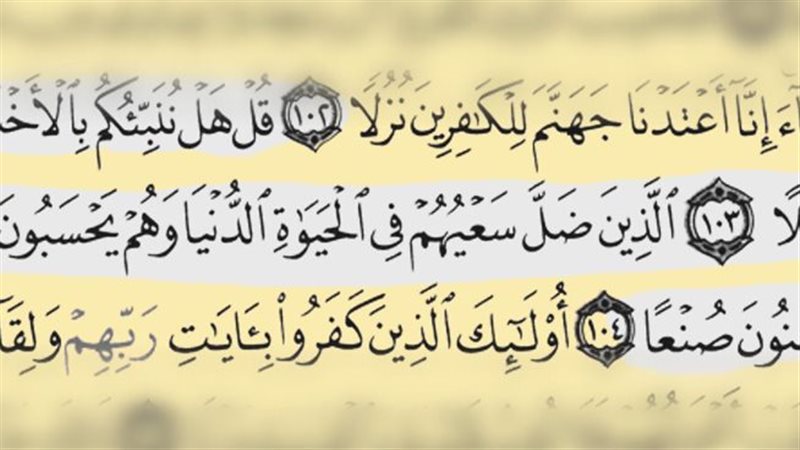 إِنَّآ أَعۡتَدۡنَا جَهَنَّمَ لِلۡكَٰفِرِينَ نُزُلٗا ١٠٢ قُلۡ هَلۡ نُنَبِّئُكُم
١٠٣ ٱلَّذِينَ ضَلَّ سَعۡيُهُمۡ فِي ٱلۡحَيَوٰةِ ٱلدُّنۡيَا وَهُمۡ يَحۡسَبُونَ
صُنۡعًا ١٠٤ أُوْلَٰٓئِكَ ٱلَّذِينَ كَفَرُواْ بِـَٔايَٰتِ رَبِّهِمۡ